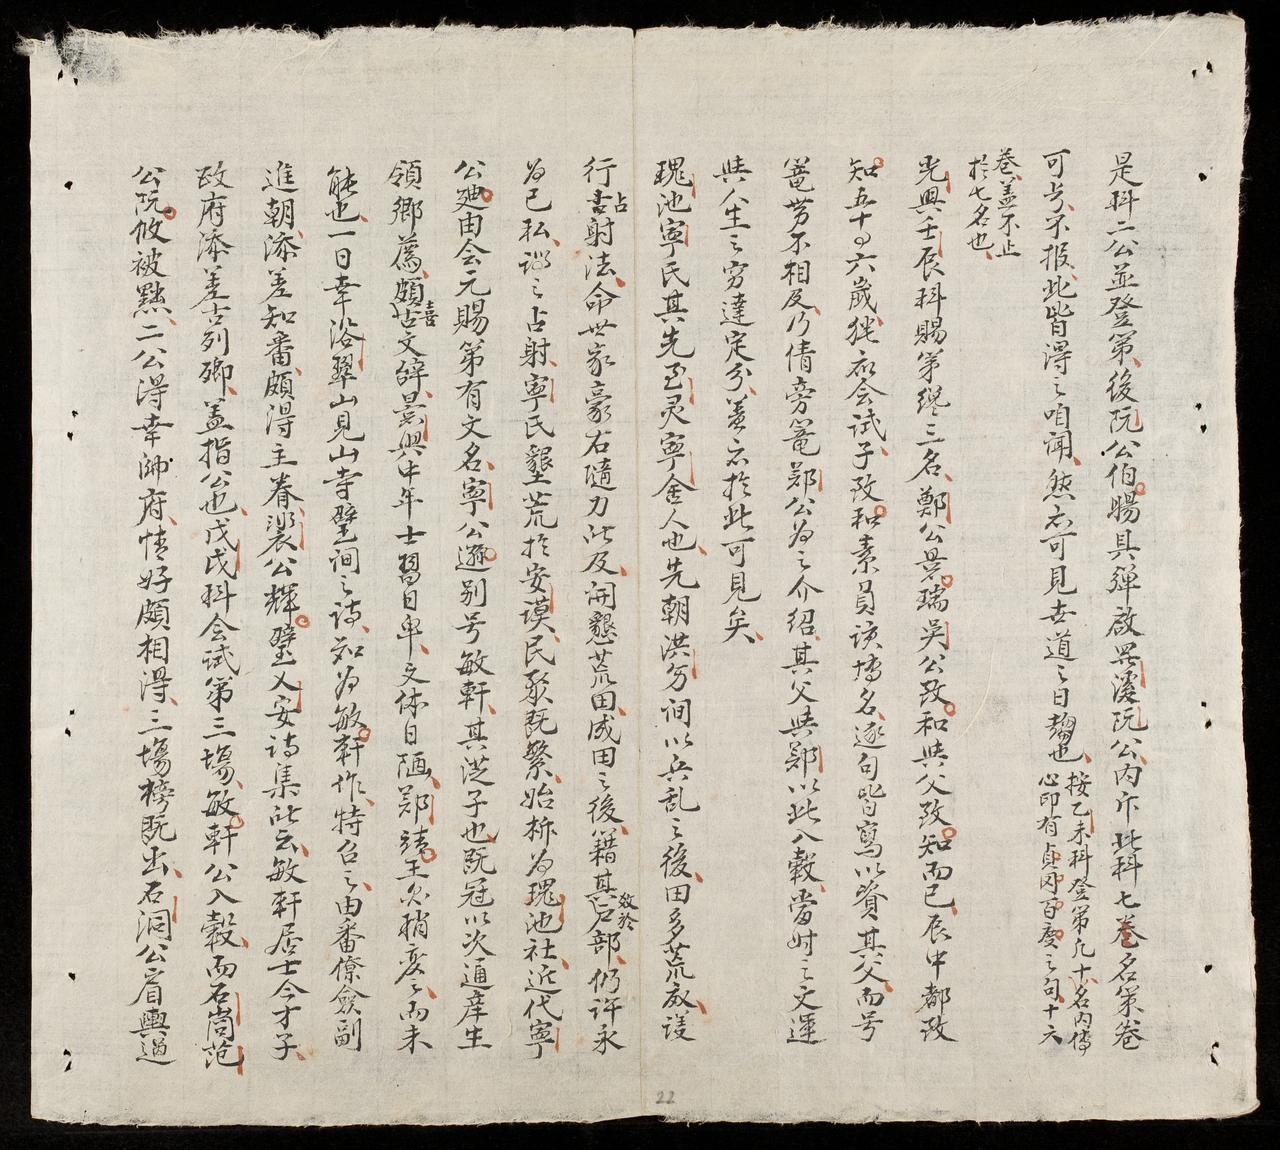 是科二公並登第後阮公伯暘具彈啟 溪阮公丙斥此科七卷名策卷
可 不報此皆得之咱聞然亦可見世道之日 也按乙未科登第凡十名內傳心印有貞 百度之句十六
卷蓋不止於七名也
光興壬辰科賜第纔三名鄭公景瑞吳公致和與父致知而已辰中都致
知五十 六歲 衣会試子致和素員該博名逐句皆寫以資其父而号
篭勢不相及乃倩旁篭鄭公为之介紹其父與鄭以此入轂當时之文運
與人生之穷達定分盖亦於此可見矣
瑰池寧民其先 灵寧舍人也先朝洪 间以兵乱之後田多荒 設
行占射法命世家豪右隨力所及開懇荒田成田之後籍其 效於户部仍許永
为已私謂之占射寧民墾荒於安謨民聚既繁始柝为瑰池社近代寧
公 由会元賜第有文名寧公遜别号敏軒其 子也既冠以次通庠生
領鄉薦頗喜古文辞景興中年士習日卑文体日陋鄭靖王 稍变之而未
能也一日幸浴翠山見山寺壁间之詩知为敏軒作特召之由番僚僉副
進朝添差知番頗得主眷裴公輝璧乂安詩集所云敏軒居士今才子
政府添差古列卿蓋指公也戊戌科会試第三塲敏軒公入轂而石崗范
公阮攸被黜二公得幸帥府情好頗相得三塲榜既出石洞公肩輿過
22